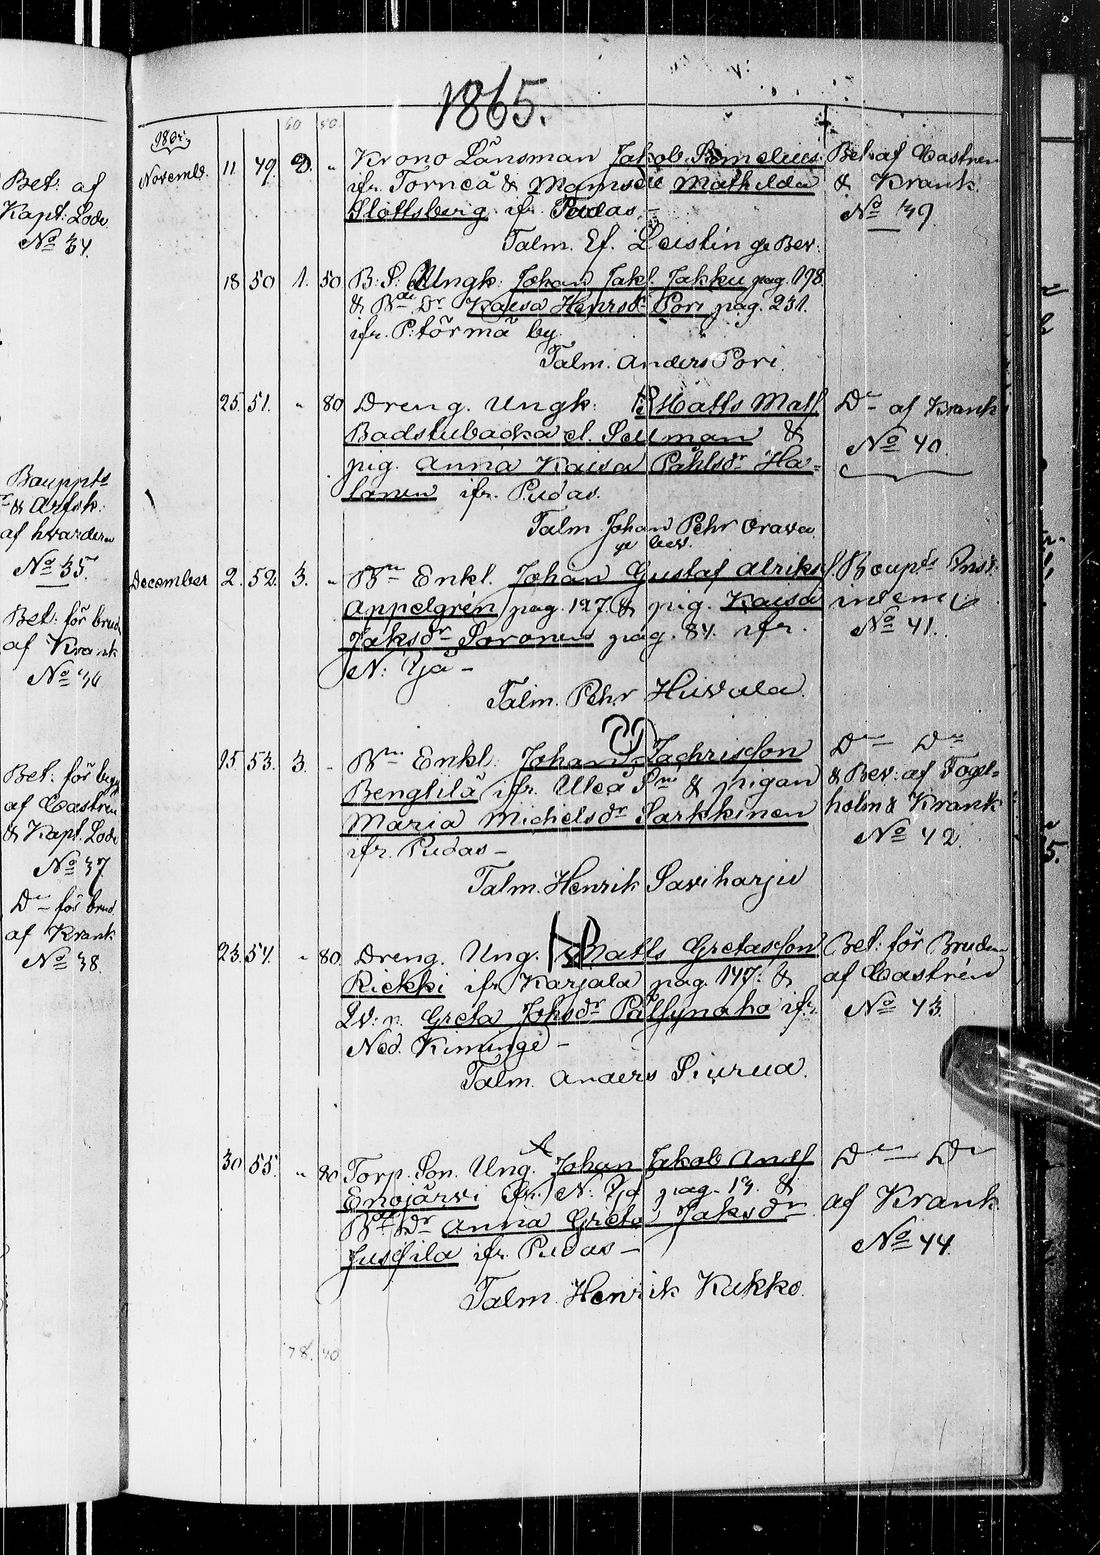 Bet: af
Kapt: Lode
No 34.
Bauppts
& Arfsk.
af hvardera
No 35.
Bet: för brud
af Krank
No 36
Bet: för begg
af Castrén
& Kapt. Lode
No 37
Do för brud
af Krank
No 38.
1865.
60 50.
1865,
Novemb. 11 49. 2. " Krono Länsman Jakob
ifr. Torneå & Mamsell Mathilda
Slottsberg ifr. Pudas. –
Talm. Ef. Leustin ge Bev.
Bet: af Castren
& Krank
No 39
18 50 1. 50 B. S. Ungk: Johan Jakl. Jakku pag. 198
& Bde Dr Kaisa Henrsdr Pori pag. 231.
ifr. P:törmä by.
Talm. Anders Pori.
25. 51. " 80 Dreng. Ungk: Matts Mats
Badstubacka el. Sellman &
pig. Anna Kaisa Påhlsdr Ha-
lonen ifr. Pudas.
Talm Johan Pehr Orava
ge bev.
Do af Krank
No 40.
December 2. 52. 3. " Bm Enkl. Johan Gustaf Alriks
Appelgrén pag. 127. & pig. Kaisa
Jaksdr Soronen pag. 84. ifr.
N: Ijå –
Talm. Pehr Huvala.
Boupts Inst.
No 41.
15 53. 3. " Bm Enkl. Johan Zachrisson
Bengtilä ifr. Uleå Sn & pigan
Maria Michelsdr Sarkkinen
ifr. Pudas –
Talm. Henrik Saviharju
Do Do
& Bev: af Fogel-
holm & Krank
No 42.
23. 54. " 80. Dreng. Ung. Matts Gretasson
Riekki ifr. Karjala pag. 147. &
Greta Joksdr ifr.
Ned. Kiminge –
Talm. Anders Siurua.
Bet: för Bruden
af Castrén
No 43.
30 55. " 80 Torp. Son. Ung. Johan Jakob Ands
Enojärvi ifr. N: Ijå pag. 19. &
Bde Dr Anna Greta Jaksdr
Jussila ifr. Pudas –
Talm. Henrik Kukko.
Do Do
af Krank
No 44.
78. 40